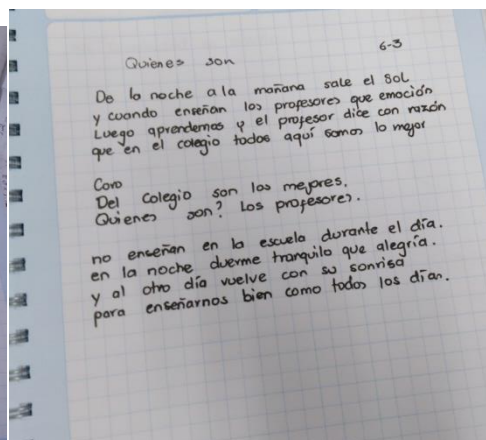 6-3
Quienes son
De la noche a la mañana sale el Sol
y cuando enseñan los profesores que emoción
Luego aprendemos y el profesor dice con razón
que en el colegio todos aquí somos lo mejor
Coro
Del Colegio son los mejores.
Quienes son? Los profesores.
no enseñan en la escuela durante el día.
en la noche duerme tranquilo que alegría.
y al otro día vuelve con su sonrisa
para enseñarnos bien como todos los días.